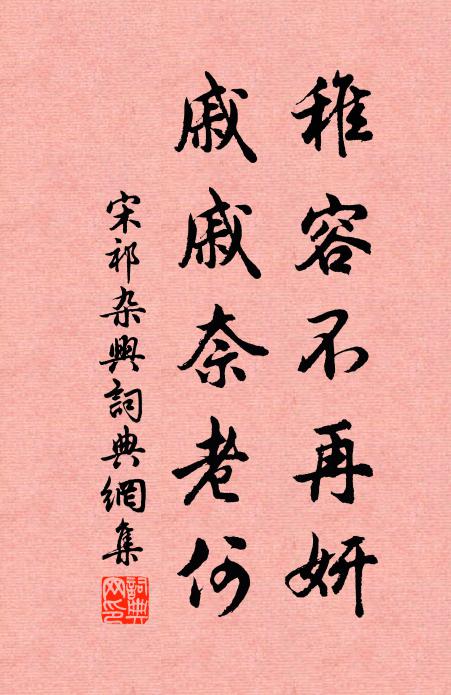 稚容不再妍
戚戚奈老何
宋祁杂興詞典網集
詞典
网印